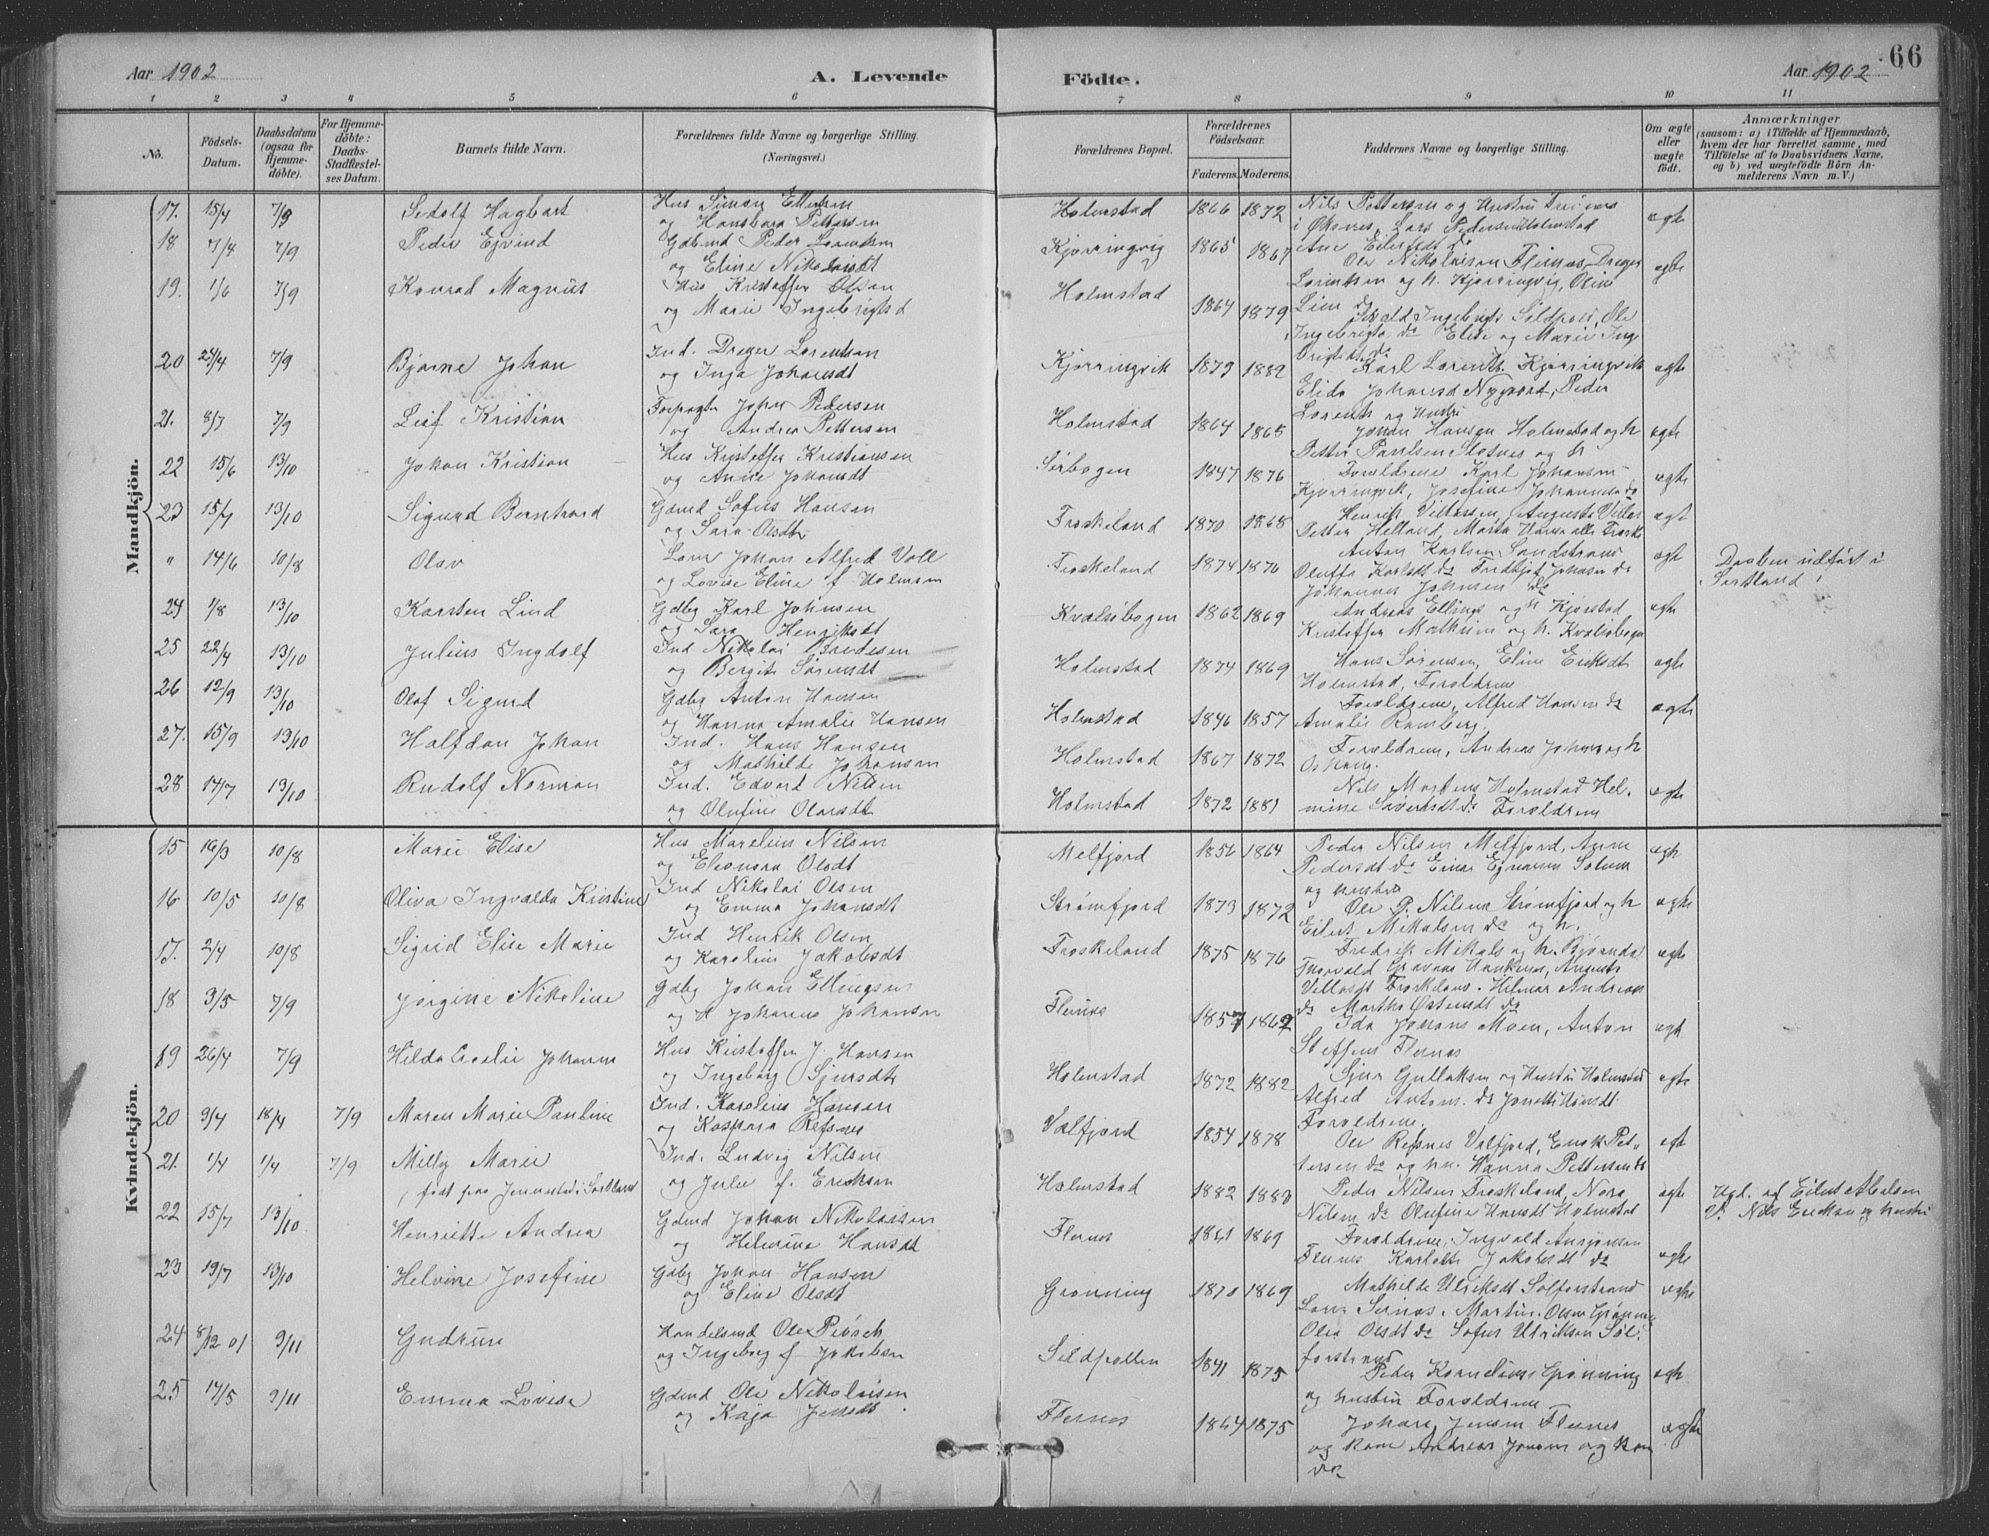 Aar 1902
A. Levende
Födte.
Aar 1902
66
1 2 3 4 5 6 7 8 9 10 11
No.
Födsels-Datum.
Daabsdatum (ogsaa for Hjemme-döbte).
For Hjemme-döbte: Daabs-Stadfæstel-ses Datum.
Barnets fulde Navn.
Forældrenes fulde Navne og borgerlige Stilling. (Næringsvei.)
Forældrenes Bopæl.
Forældrenes Födselsaar.
Faderens. Moderens.
Faddernes Navne og borgerlige Stilling.
Om ægte eller uægte födt.
Anmærkninger
(saasom: a) i Tilfælde af Hjemmedaab, hvem der har forrettet samme, med Tilföielse af to Daabsvidners Navne, og b) ved uægtefödte Börn Anmelderens Navn m. V.)
Mandkjön.
17. 15/4 7/9 Sedolf Hagbart Hus Simon Ettersen og Hansbara Pettersen Holmstad 1866 1872 Nils Pettersen og Hustru i Øksnes, Lars Pedersen Holmstad ægte
18 7/4 7/9 Peder Ejvind Gdbmd Peder Lorentsen og Eline Nikolaisdt Kjørringvig 1865 1867 Ane Eilertsdt do Ole Nikolaisen Flesnes, Dreyer Lorentsen og h. Kjørringvig, Oline ægte
19. 1/6 7/9 Konrad Magnus Hus Kristoffer Olsen og Marie Ingebrigtsd Holmstad 1864 1879 Lien do Ingebrigts Sildpol, Ole Ingebrigts do Elise og Marie Inge brigtsdt do
20 24/4 7/9 Bjarne Johan Ind. Dreyer Lorentsen og Inga Johansdt Kjørringvik 1873 1882 Karl Lorents Kjørringvik Elida Johansd Nygaard, Peder Lorents og Hustru ægte
21. 8/7 7/9 Leif Kristian Forpagter Johan Pedersen og Andrea Pettersen Holmstad 1864 1865 Johan Hansen Holmstad og h Petter Paulsen og h ægte
22 15/6 13/10 Johan Kristian Hus Kristoffer Kristiansen og Anne Johansdt Sørbogen 1847 1876 Forældrene Karl Johansen Kjørringvik, Josefine Johannesd do ægte
23 15/7 13/10 Sigurd Bernhard Gdmd Sofus Hansen og Sara Olsdtr Froskeland 1870 1868 Henrik Villassen, Augusta Villas Petter Helland, Marta Hansen alle Froske ægt
" 14/6 10/8 Olav Lærer Johan Alfred Voll og Lovise Eline f Holmsen Froskeland 1874 1870 Anton Karlsen Sandstrand Oluffa Karlsdt do Fredrik Johnsen do Johannes Johnsen do ægte Daaben udført i Sortland!
24 7/8 13/10 Karsten Lind Gdbg Karl Johnsen og Sara Henriksdt Kvalsbogen 1862 1869 Andreas Ellings og h Kjørstad Kristoffer og h. Kvalsbogen ægte
25 22/4 13/10 Julius Ingdolf Ind Nikolai Bredesen og Bergit Sørensdt Holmstad 1874 1869 Hans Sørensen, Eline Eriksdt Holmstad, Forældrene ægte
26 12/9 13/10 Olaf Sigurd Gdbg Anton Hansen og Hanna Amalie Hansen Holmstad 1846 1857 Forældrene, Alfred Hansen do Amalie Ramberg ægte
27. 15/9 13/10 Halfdan Johan Ind. Hans Hansen og Mathilde Johansen Holmstad 1867 1872 Forældrene, Andreas Johans og h ægte
28 14/7 13/10 Rudolf Norman Ind. Edvard Nilsen og Olufine Olausdt Holmstad 1872 1881 Nils Martens Holmstad Helmine Sivertsdt do Forældrene ægte
Kvindekjön.
15 16/3 10/8 Marie Elise Hus Marelius Nilsen og Eleonora Olsdt Melfjord 1856 1864 Peder Nilsen Melfjord, Anne Pedersdt do Einar og hustru ægte
16 10/5 10/8 Oliva Ingvalda Kristine Ind Nikolai Olsen og Emma Johansdt Strømfjord 1873 1872 Ole P. Nilsen Strømfjord og h Eilert Mikalsen do og h. ægte
17. 2/4 10/8 Sigrid Elise Marie Ind Henrik Olsen og Karoline Jakobsdt Froskeland 1875 1876 Fredrik Mikals og h. Thorvald Hansen, Augusta Villasdt Froskeland. Hilmar Andreas do Martha do ægte
18 3/5 7/9 Jørgine Nikoline Gdbg Johan Ellingsen og H Johanne Johansen Flesnes 1857 1862 Ida Johans Moen, Anton Steffens Flesnes ægte
19 26/4 7/9 Hilda Cecilie Johanne Hus Kristoffer J. Hansen og Ingeborg Sjursdtr Holmstad 1872 1882 Sjur Gullaksen og Hustru Holmstad Alfred Antons. do Forældrene. ægte
20 9/4 18/4 7/9 Maren Marie Pauline Ind. Karolius Hansen og Kaspara Refsnes Valfjord 1854 1878 Ole Refsnes Valfjord, Enok Pettersen do og hu. Hanna Pettersen do ægt
21. 1/4 1/4 7/9 Milly Marie (født paa Jennestad i Sortland Ind. Ludvig Nilsen og Julie f. Eriksen Holmstad 1882 1883 Peder Nilsen Froskeland, Nora Nilsen do Olufine Hansdt Holmstad ægte Hjd. af Eilert Abelsen V. Nils Eriksen og hustru
22 15/7 13/10 Henriette Andrea Gdmd Johan Nikolaisen og Helmine Hansdt Flesnes 1861 1869 Forældrene, Ingvald Flesnes Karlotte Jakobsdt do ægte
23 19/7 13/10 Helvine Josefine Gdbg Johan Hansen og Eline Olsdt Grønning 1870 1869 Mathilde Ulriksdt Solforstrand Martin Olsen Grønning Olea Olsdt do Sofus Ulriksen Solforstrand ægte
24 8/12 01 9/11 Gudrun Handelsmd Ole Piósch og Ingeborg f Jakobsen Sildpollen 1841 1875 Peder Kornelius Grønning og hustru Forældrene ægte
25 14/5 9/11 Emma Lovise Gdmd Ole Nikolaisen og Kaja Jensdt Flesnes 1864 1875 Johan Jensen Flesnes og kone Andreas Jensen og kone do ægte